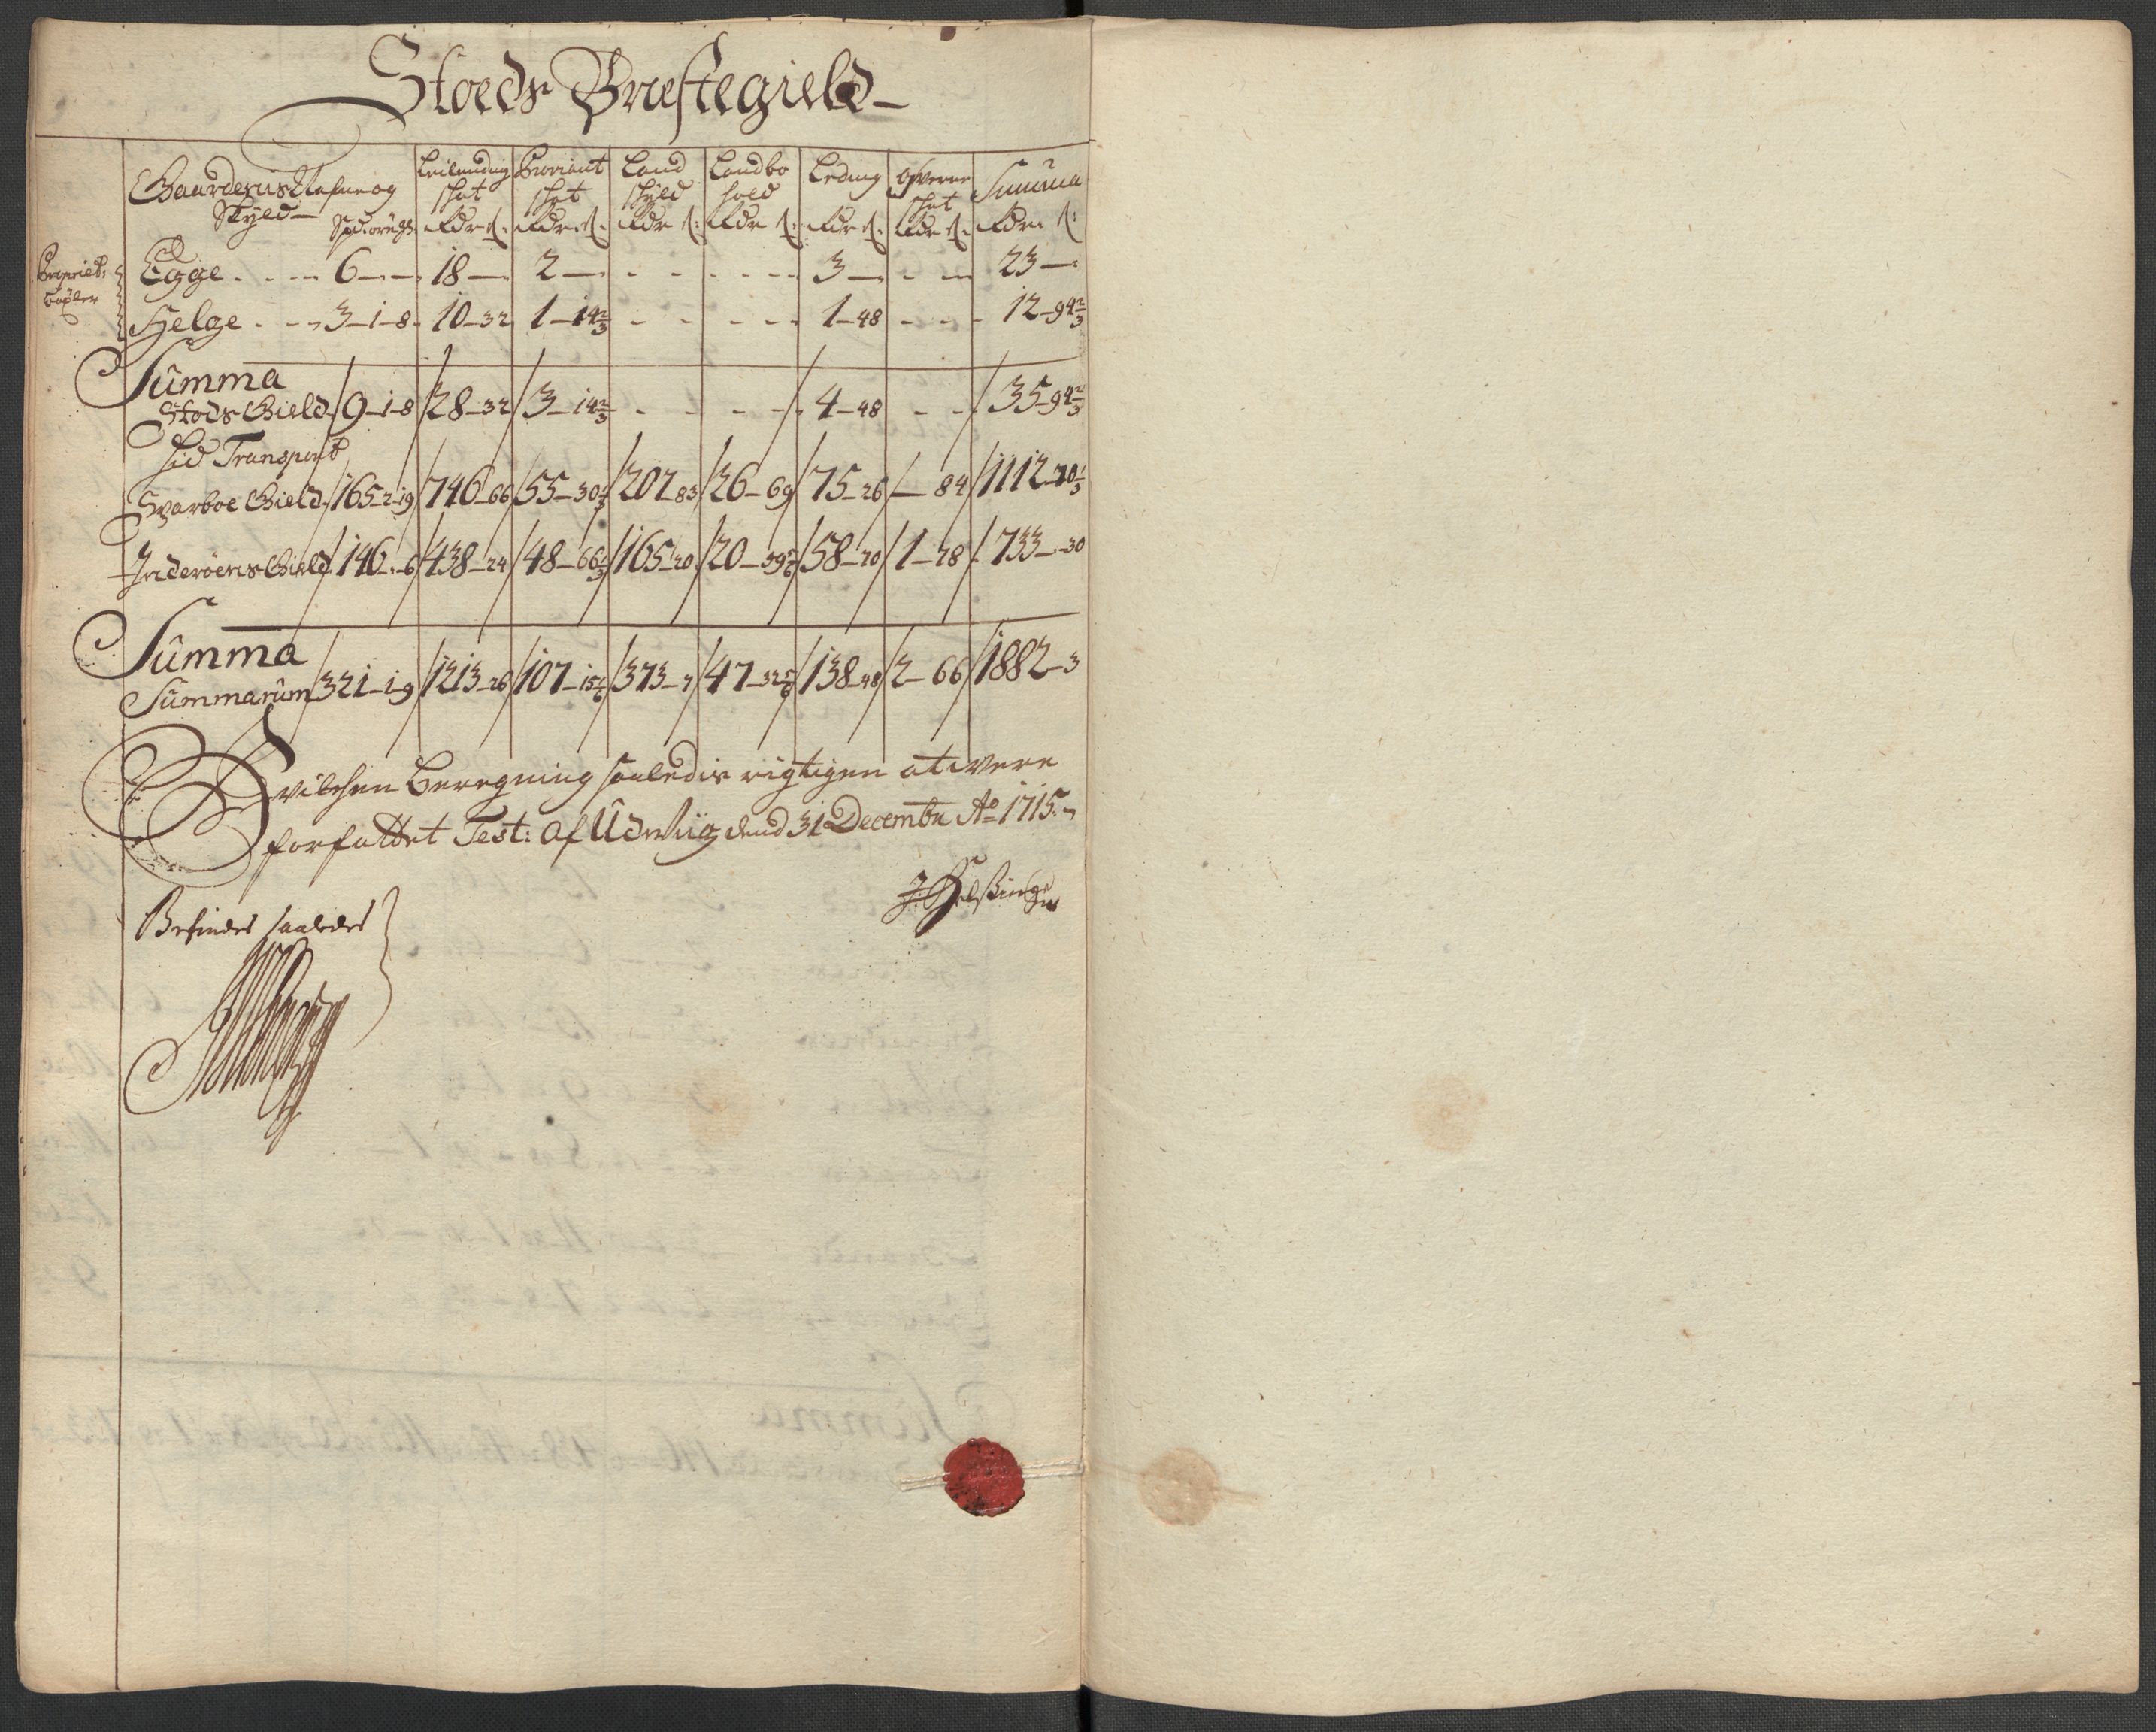 Stoeds Præstegield
Gaardernis Nafne og Skyld Spd: ör: mk: | Leilendings skat Rdr s: | Proviant skat Rdr s: | Land skyld Rdr s: | Landbo hold Rdr s: | Leding Rdr s: | Rdr s: | Summa Rdr s:
Propriet:
Egge . . . . 6 — — 18 — 2 — - - - - 3 — - - 23 —
Helge . . . 3-1-8 10-32 1-14 2/3 - - - - 1-48 - - 12-94 2/3
Summa
Stods Gield 9-1-8 28-32 3-14 2/3 - - - - 4-48 - - 35-94 2/3
Hid Transport
Sparboe Gield 165-2-19 746-66 55-30 1/2 207-83 26-69 75-26 — 84 1112-70 1/3
Inderöens Gield 146-.-6 438-24 48-66 1/3 165-20 20-39 5/6 58-70 1-78 733-30
Summa
Summarum 321-1-9 1213-26 107-15 5/6 373-7 47-32 5/6 138-48 2-66 1882-3
Hvilchen Beregning saaledis rigtigen at were
forfattet Test: af Udwiig dend 31 Decembr Ao 1715
Befindes saaledes